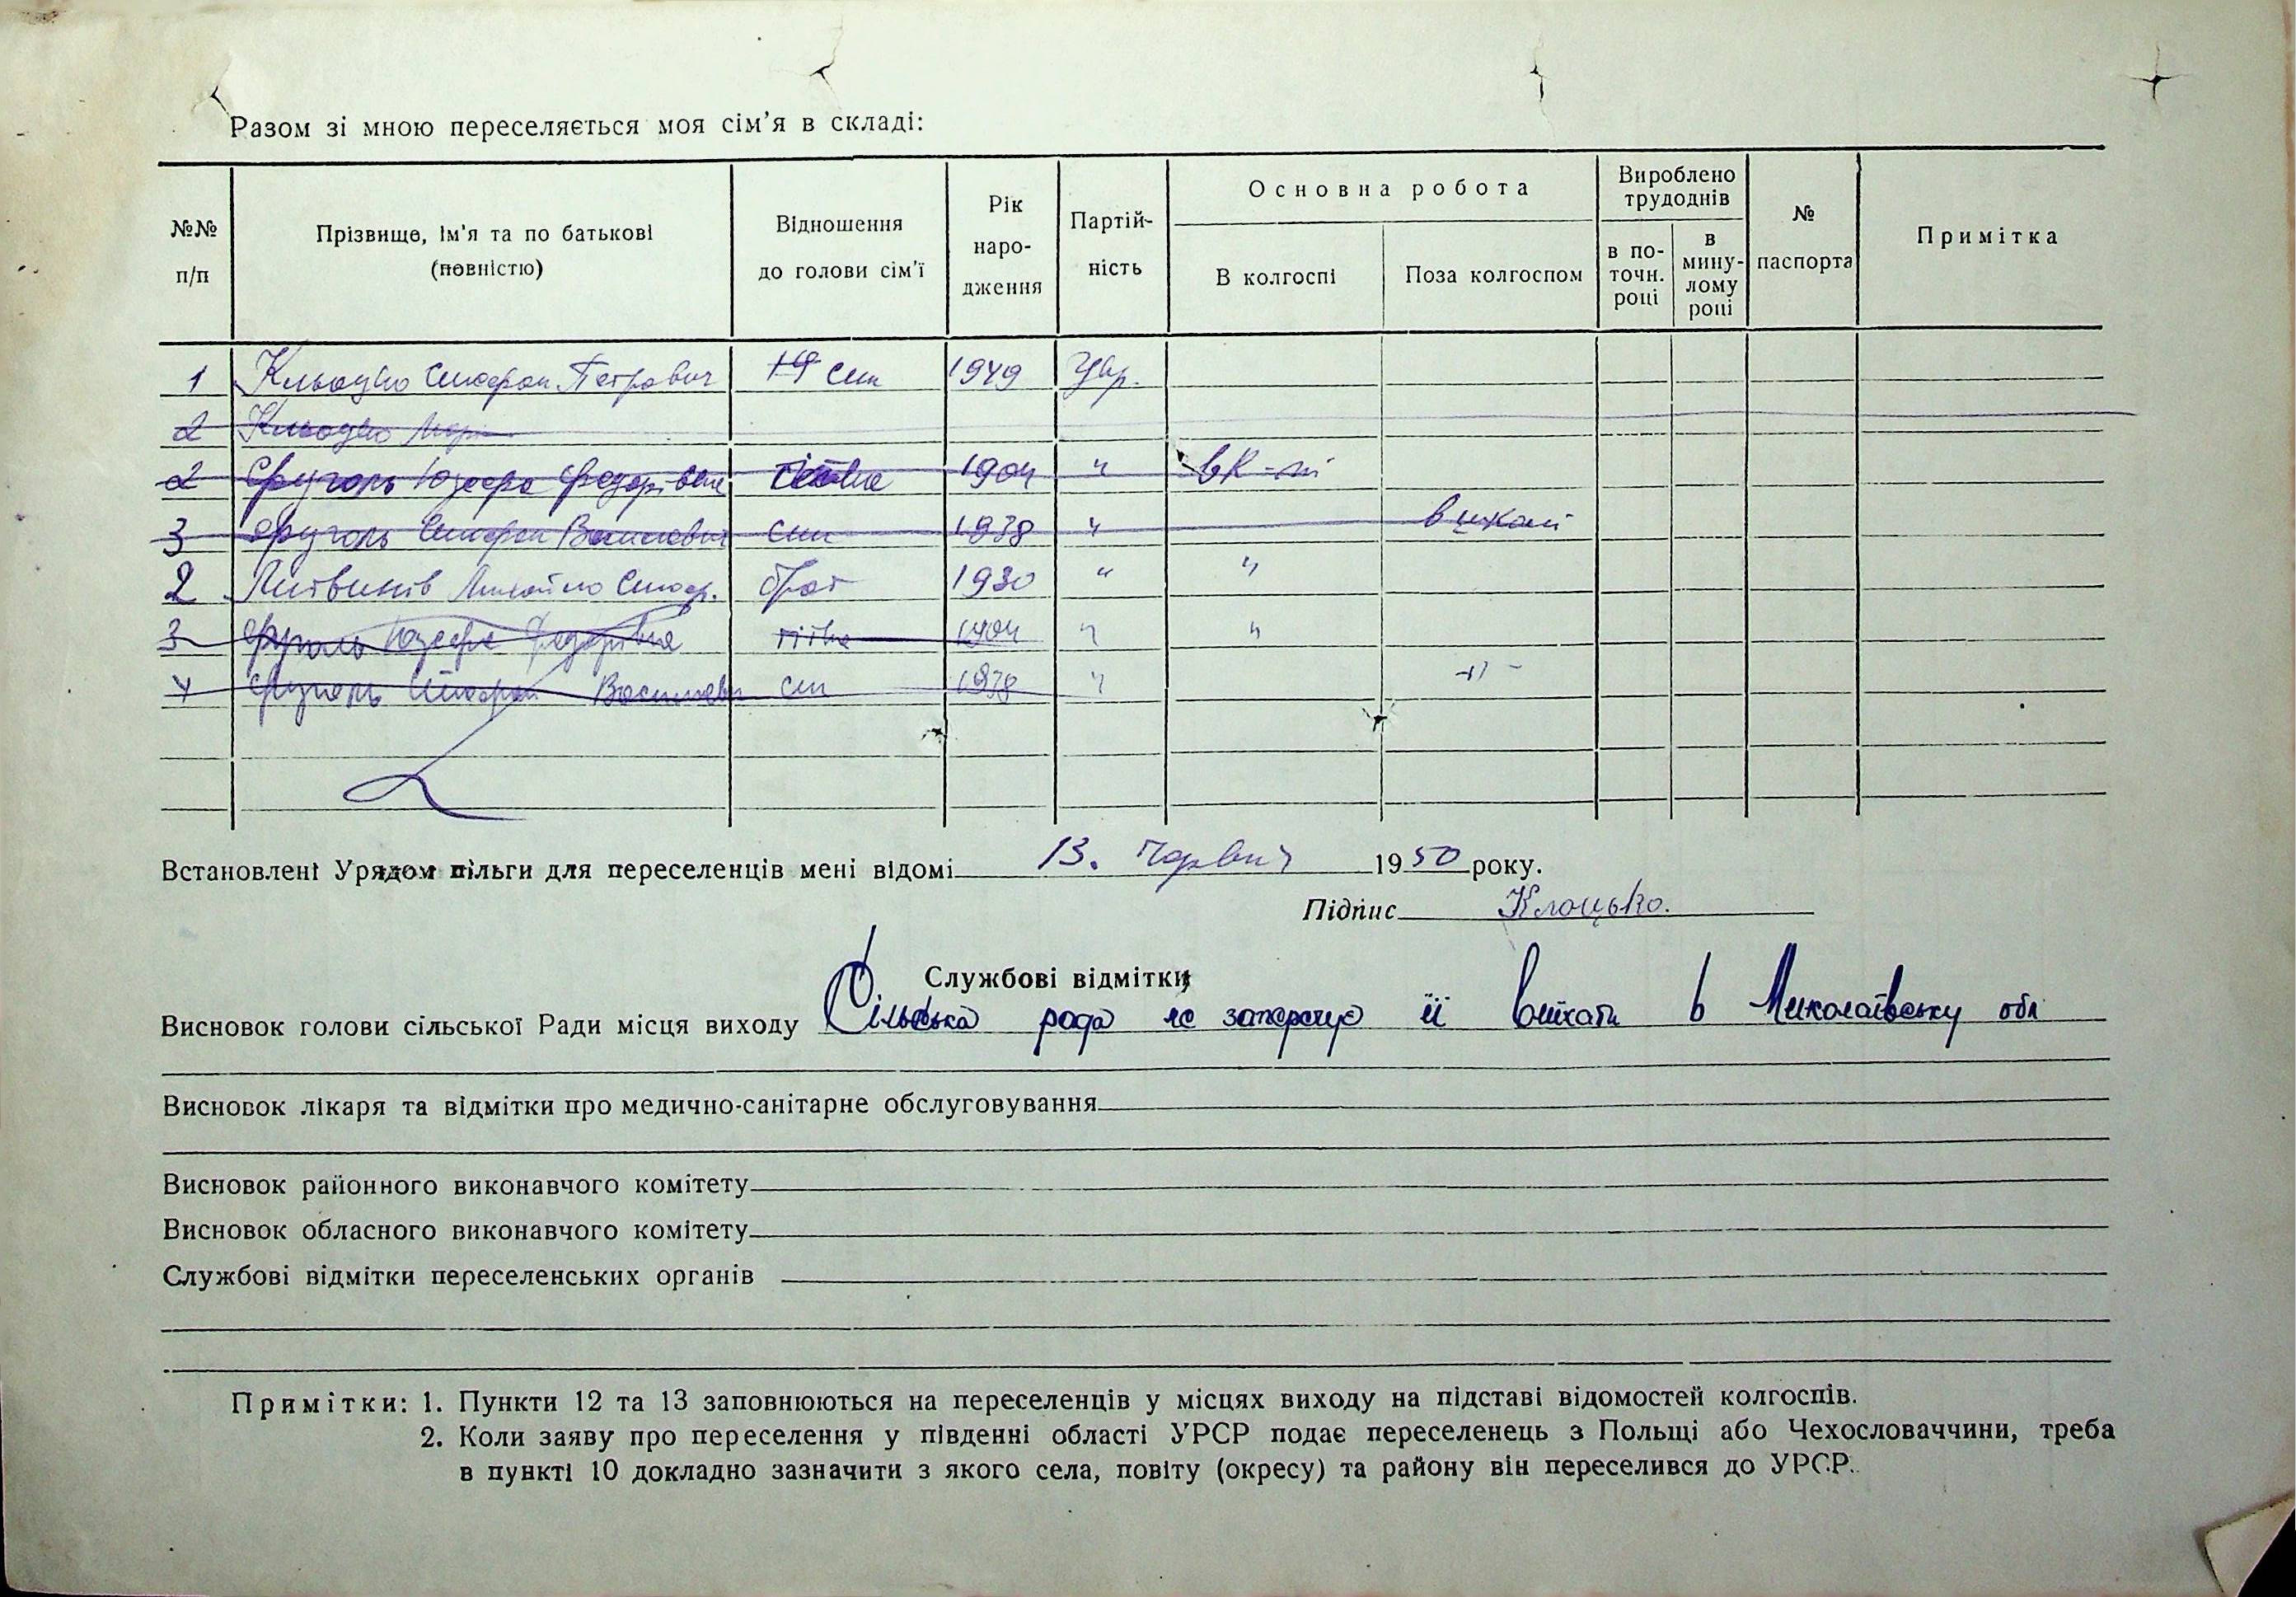 Разом зі мною переселяється моя сім'я в складі:
№№ п/п
Прізвище, ім'я та по батькові (повністю)
Відношення до голови сім'ї
Рік народження
Партійність
Основна робота
В колгоспі
Поза колгоспом
Вироблено трудоднів
в поточн. році
в минулому році
№ паспорта
Примітка
1 Стефан Петрович 19 син 1949 Укр.
2
2 Фруголь Юзефа Федорівна тітка 1904 "
3 Фруголь Стефан син 1938 " в школі
2 Литвинів Михайло Стеф. брат 1930 " "
3 Юзефа Федорівна тітка 1904 " "
4 Фруголь Стефан син 1938 " -"-
Встановлені Урядом пільги для переселенців мені відомі 13. 1950 року.
Підпис Клоцько.
Службові відмітки
Висновок голови сільської Ради місця виходу Сільська рада не заперечує її виїхати в Миколаївську обл
Висновок лікаря та відмітки про медично-санітарне обслуговування
Висновок районного виконавчого комітету
Висновок обласного виконавчого комітету
Службові відмітки переселенських органів
Примітки: 1. Пункти 12 та 13 заповнюються на переселенців у місцях виходу на підставі відомостей колгоспів.
2. Коли заяву про переселення у південні області УРСР подає переселенець з Польщі або Чехословаччини, треба
в пункті 10 докладно зазначити з якого села, повіту (окресу) та району він переселився до УРСР.